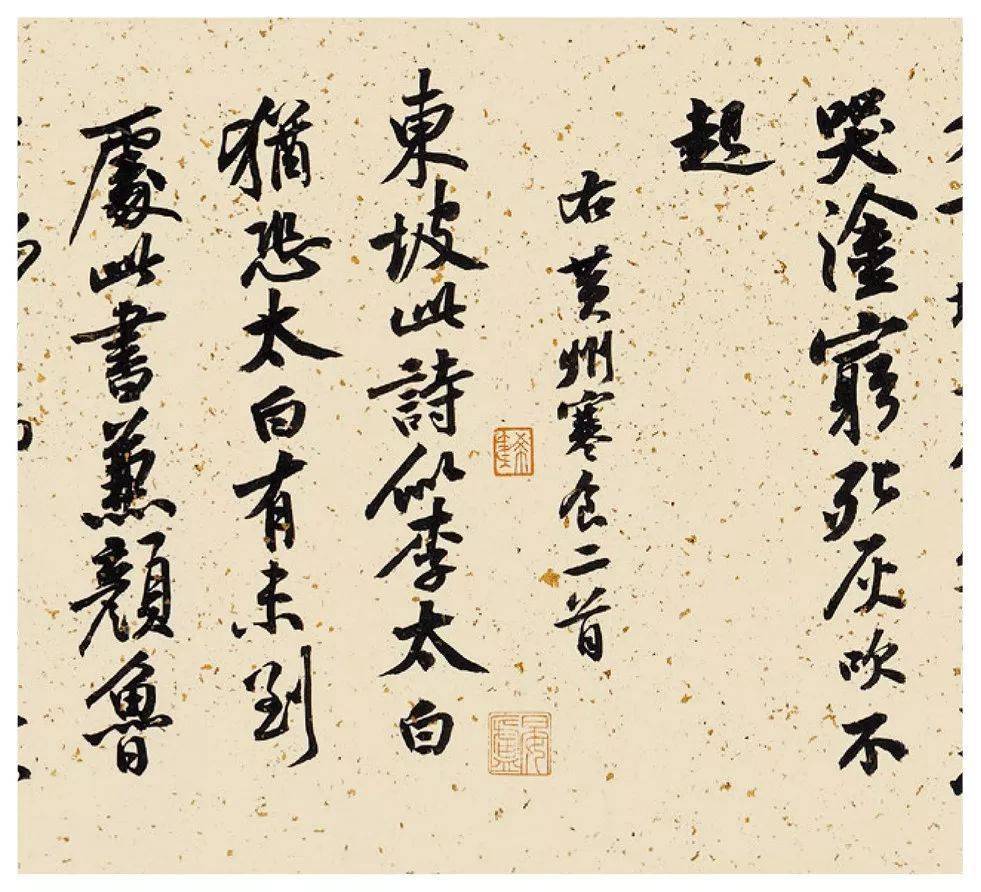 哭塗窮死灰吹不
起
右黄州寒食二首
東坡此詩似李太白
猶恐太白有未到
處此書兼顏魯